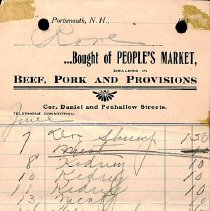 Portsmouth, N. H.,
Rowe
...Bought of PEOPLE'S MARKET,
DEALERS IN
BEEF, PORK AND PROVISIONS
Cor. Daniel and Penhallow Streets.
TELEPHONE CONNECTION.
June
7 Shrimp 150
8 Kidney 10
10 Kidney 10
11 Kidney 10
13 Meat